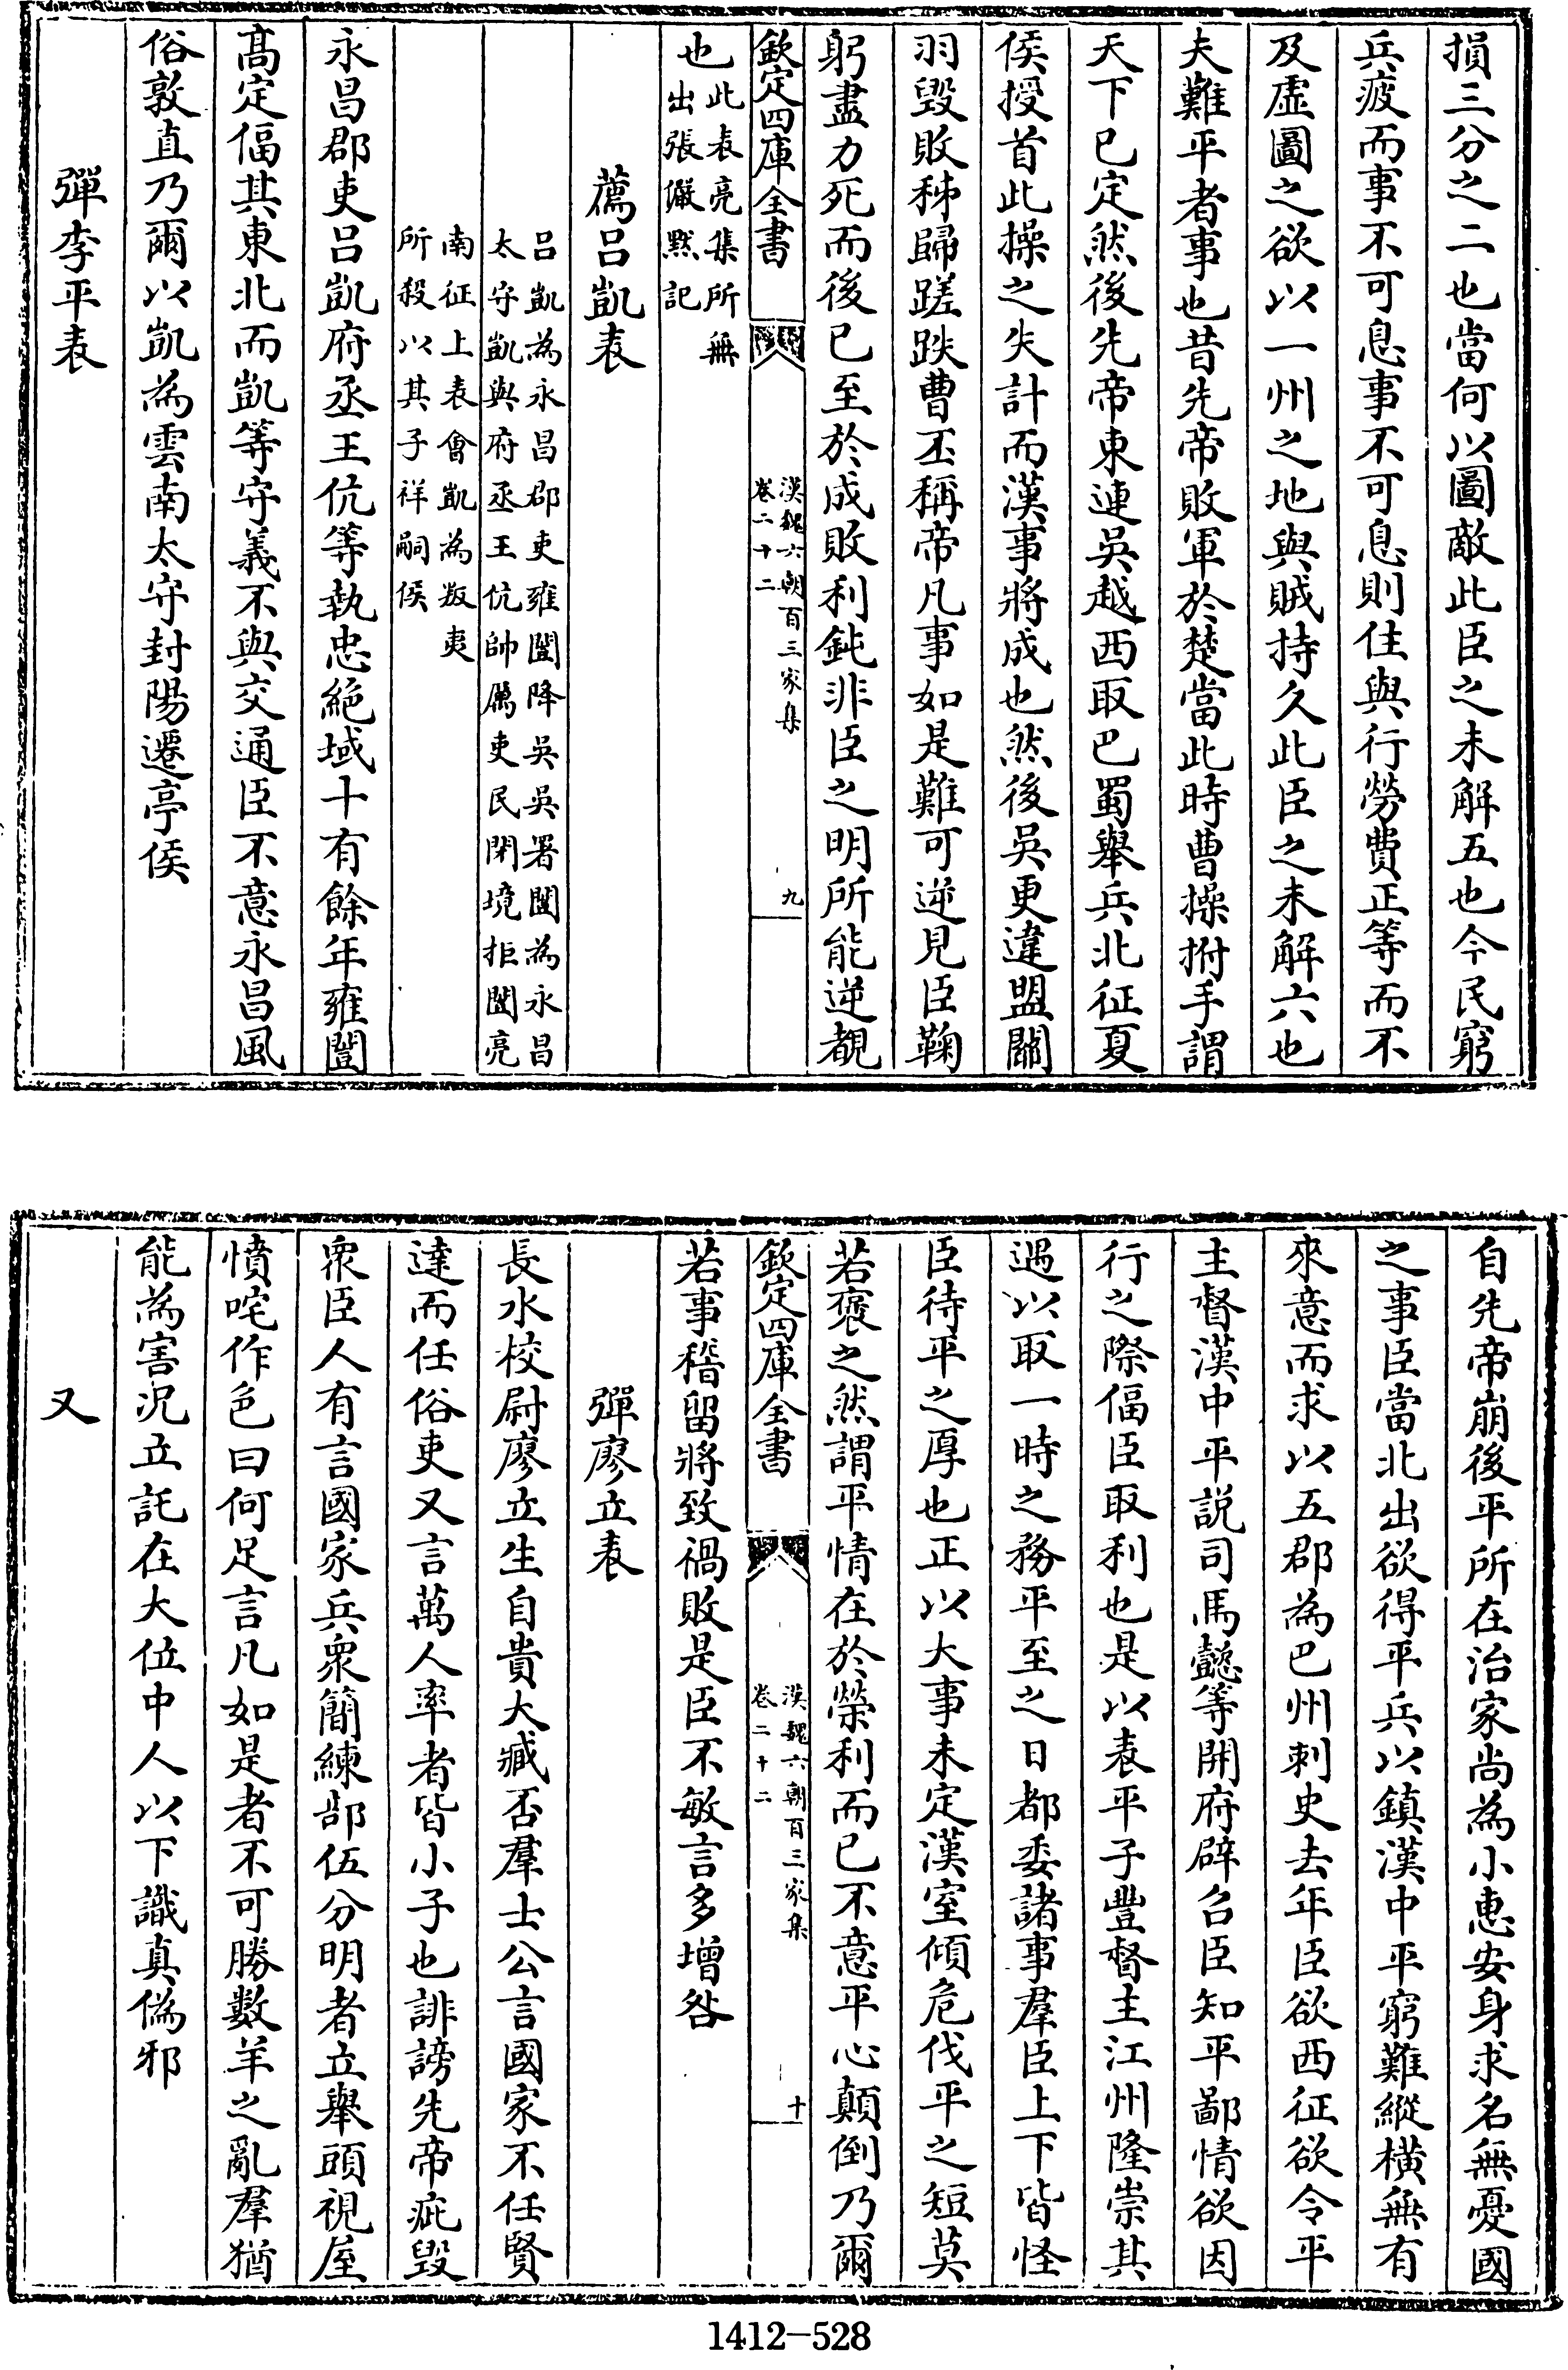 損三分之二也當何以圖敵此臣之未解五也今民窮
兵疲而事不可息事不可息則住與行勞費正等而不
及虛圖之欲以一州之地與賊持久此臣之未解六也
夫難平者事也昔先帝敗軍於楚當此時曹操拊手謂
天下已定然後先帝東連吳越西取巴蜀舉兵北征夏
侯授首此操之失計而漢事將成也然後吳更違盟關
羽毀敗秭歸蹉跌曹丕稱帝凡事如是難可逆見臣鞠
躬盡力死而後已至於成敗利鈍非臣之明所能逆覩
欽定四庫全書
漢魏六朝百三家集
卷二十二
九
也
此表亮集所無
出張儼黙記
薦呂凱表
呂凱為永昌郡吏雍闓降吳吳署闓為永昌
太守凱與府丞王伉帥厲吏民閉境拒闓亮
南征上表會凱為叛夷
所殺以其子祥嗣侯
永昌郡吏呂凱府丞王伉等執忠絶域十有餘年雍闓
高定偪其東北而凱等守義不與交通臣不意永昌風
俗敦直乃爾以凱為雲南太守封陽遷亭侯
彈李平表
自先帝崩後平所在治家尚為小惠安身求名無憂國
之事臣當北出欲得平兵以鎮漢中平窮難縱橫無有
來意而求以五郡為巴州刺史去年臣欲西征欲令平
主督漢中平説司馬懿等開府辟召臣知平鄙情欲因
行之際偪臣取利也是以表平子豐督主江州隆崇其
遇以取一時之務平至之日都委諸事羣臣上下皆怪
臣待平之厚也正以大事未定漢室傾危伐平之短莫
若襃之然謂平情在於榮利而已不意平心顛倒乃爾
欽定四庫全書
漢魏六朝百三家集
卷二十二
十
若事稽留將致禍敗是臣不敏言多增咎
彈廖立表
長水校尉廖立坐自貴大臧否羣士公言國家不任賢
達而任俗吏又言萬人率者皆小子也誹謗先帝疵毀
衆臣人有言國家兵衆簡練部伍分明者立舉頭視屋
憤咤作色曰何足言凡如是者不可勝數羊之亂羣猶
能為害况立託在大位中人以下識真偽邪
又
1412—528